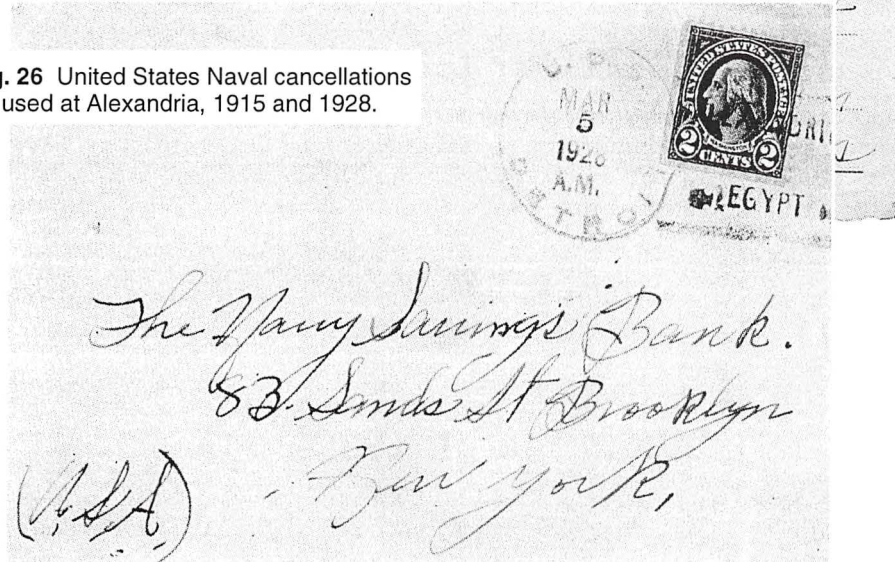 26 United States Naval cancellations
used at Alexandria, 1915 and 1928.
U.S.
MAR
5
1928
A.M.
DETROIT
UNITED STATES POSTAGE
2 CENTS 2
EGYPT
The Navy Savings Bank.
83. Sands St Brooklyn
New York,
(U.S.A.)